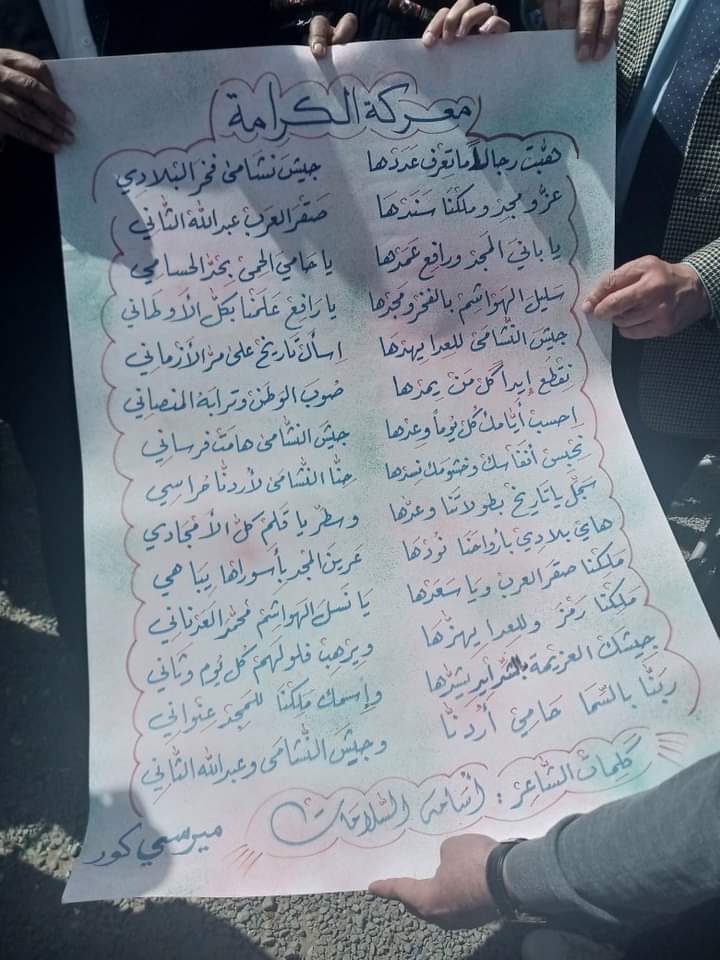 معركة الكرامة
هبّت رجالاً ماتعرف عددها جيش نشامى فخر البلادي
عزّ ومجدٍ وملكنا سندها صقر العرب عبدالله الثاني
يا باني المجد ورافع عمدها يا حامي الحمى بحدّ الحسامي
سليل الهواشم بالفخر ومجدها يا رافع علمنا بكل الأوطاني
جيش النشامى للعدا يهدها اسأل تاريخ على مر الأزماني
نقطع إيداً كل من يمدها صوب الوطن وترابه المنصاني
احسب أيامك كل يوماً وعدها جيش النشامى هامت فرساني
نحبس أنفاسك وخشومك نسدها حنا النشامى لأردنا حراسي
سجّل ياتاريخ بطولاتنا وعدّها وسطر يا قلم كل الأمجادي
هاي بلادي بأرواحنا نودها عرين المجد بأسوارها يباهي
ملكنا صقر العرب ويا سعدها يا نسل الهواشم محمد العدناني
ملكنا رمز وللعدا يهزها ويرهب فلولهم كل يوم وثاني
جيشك العزيمة بالشدايد يشدها وإسمك ملكنا للمجد عنواني
ربنا بالسما حامي أردنا وجيش النشامى وعبدالله الثاني
كلمات الشاعر : أسامه السلامات
ميرسي كور